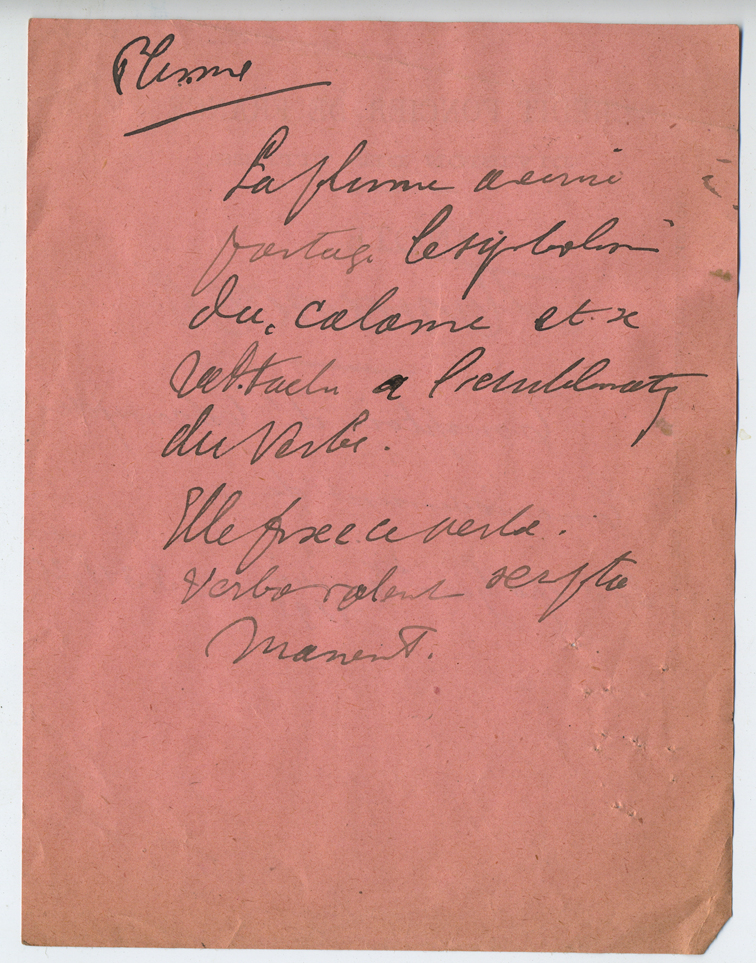 Plume
La plume
partage le symbolisme
du calame et se
rattache a l'emblematq
du Verbe.
Elle fixe ce verbe.
Verba volent scripta
Manent.